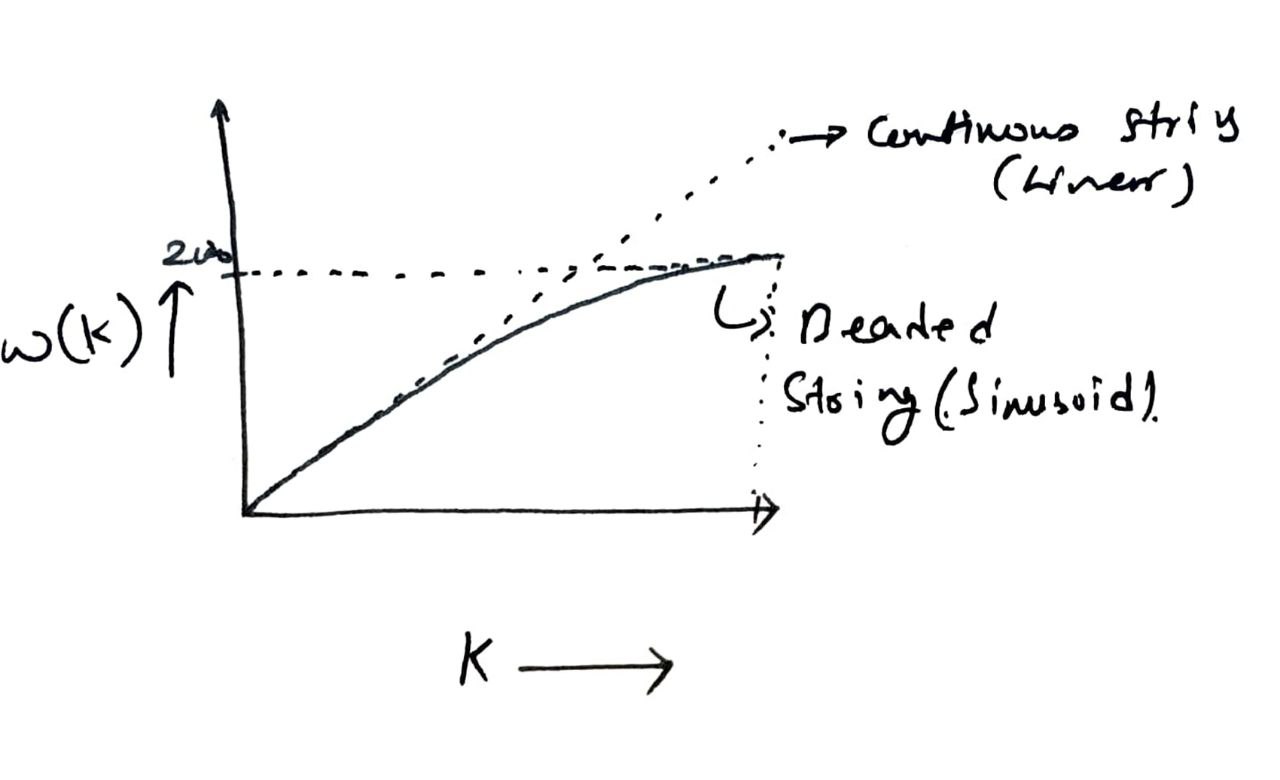 → Continuous string
(Linear)
2ω₀
ω(k) ↑
↳ Beaded
String (Sinusoid).
K →